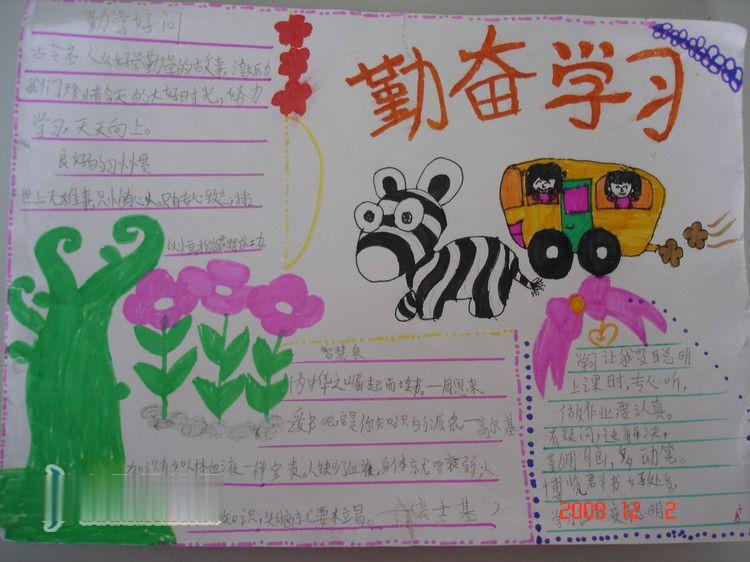 勤学好问
古今名人从好学勤学的古故事,激历
我们珍惜今天的大好时光,努力
学习,天天向上。
良好的习惯
世上无难事,只怕有心人。只有专心致志
勤奋学习
智慧泉
为中华之崛起而读书。—周恩来
爱书吧它是你知识的源泉—高尔基
知识有如人体血液一样宝贵。人缺少了血液,身体就要衰弱,人
知识,头脑就要枯竭。
(高士其)
学习让我变聪明
上课时,专心听,
做作业要认真。
有疑问,速解决,
勤用脑,多动笔。
博览群书好处多,
2009 12 2